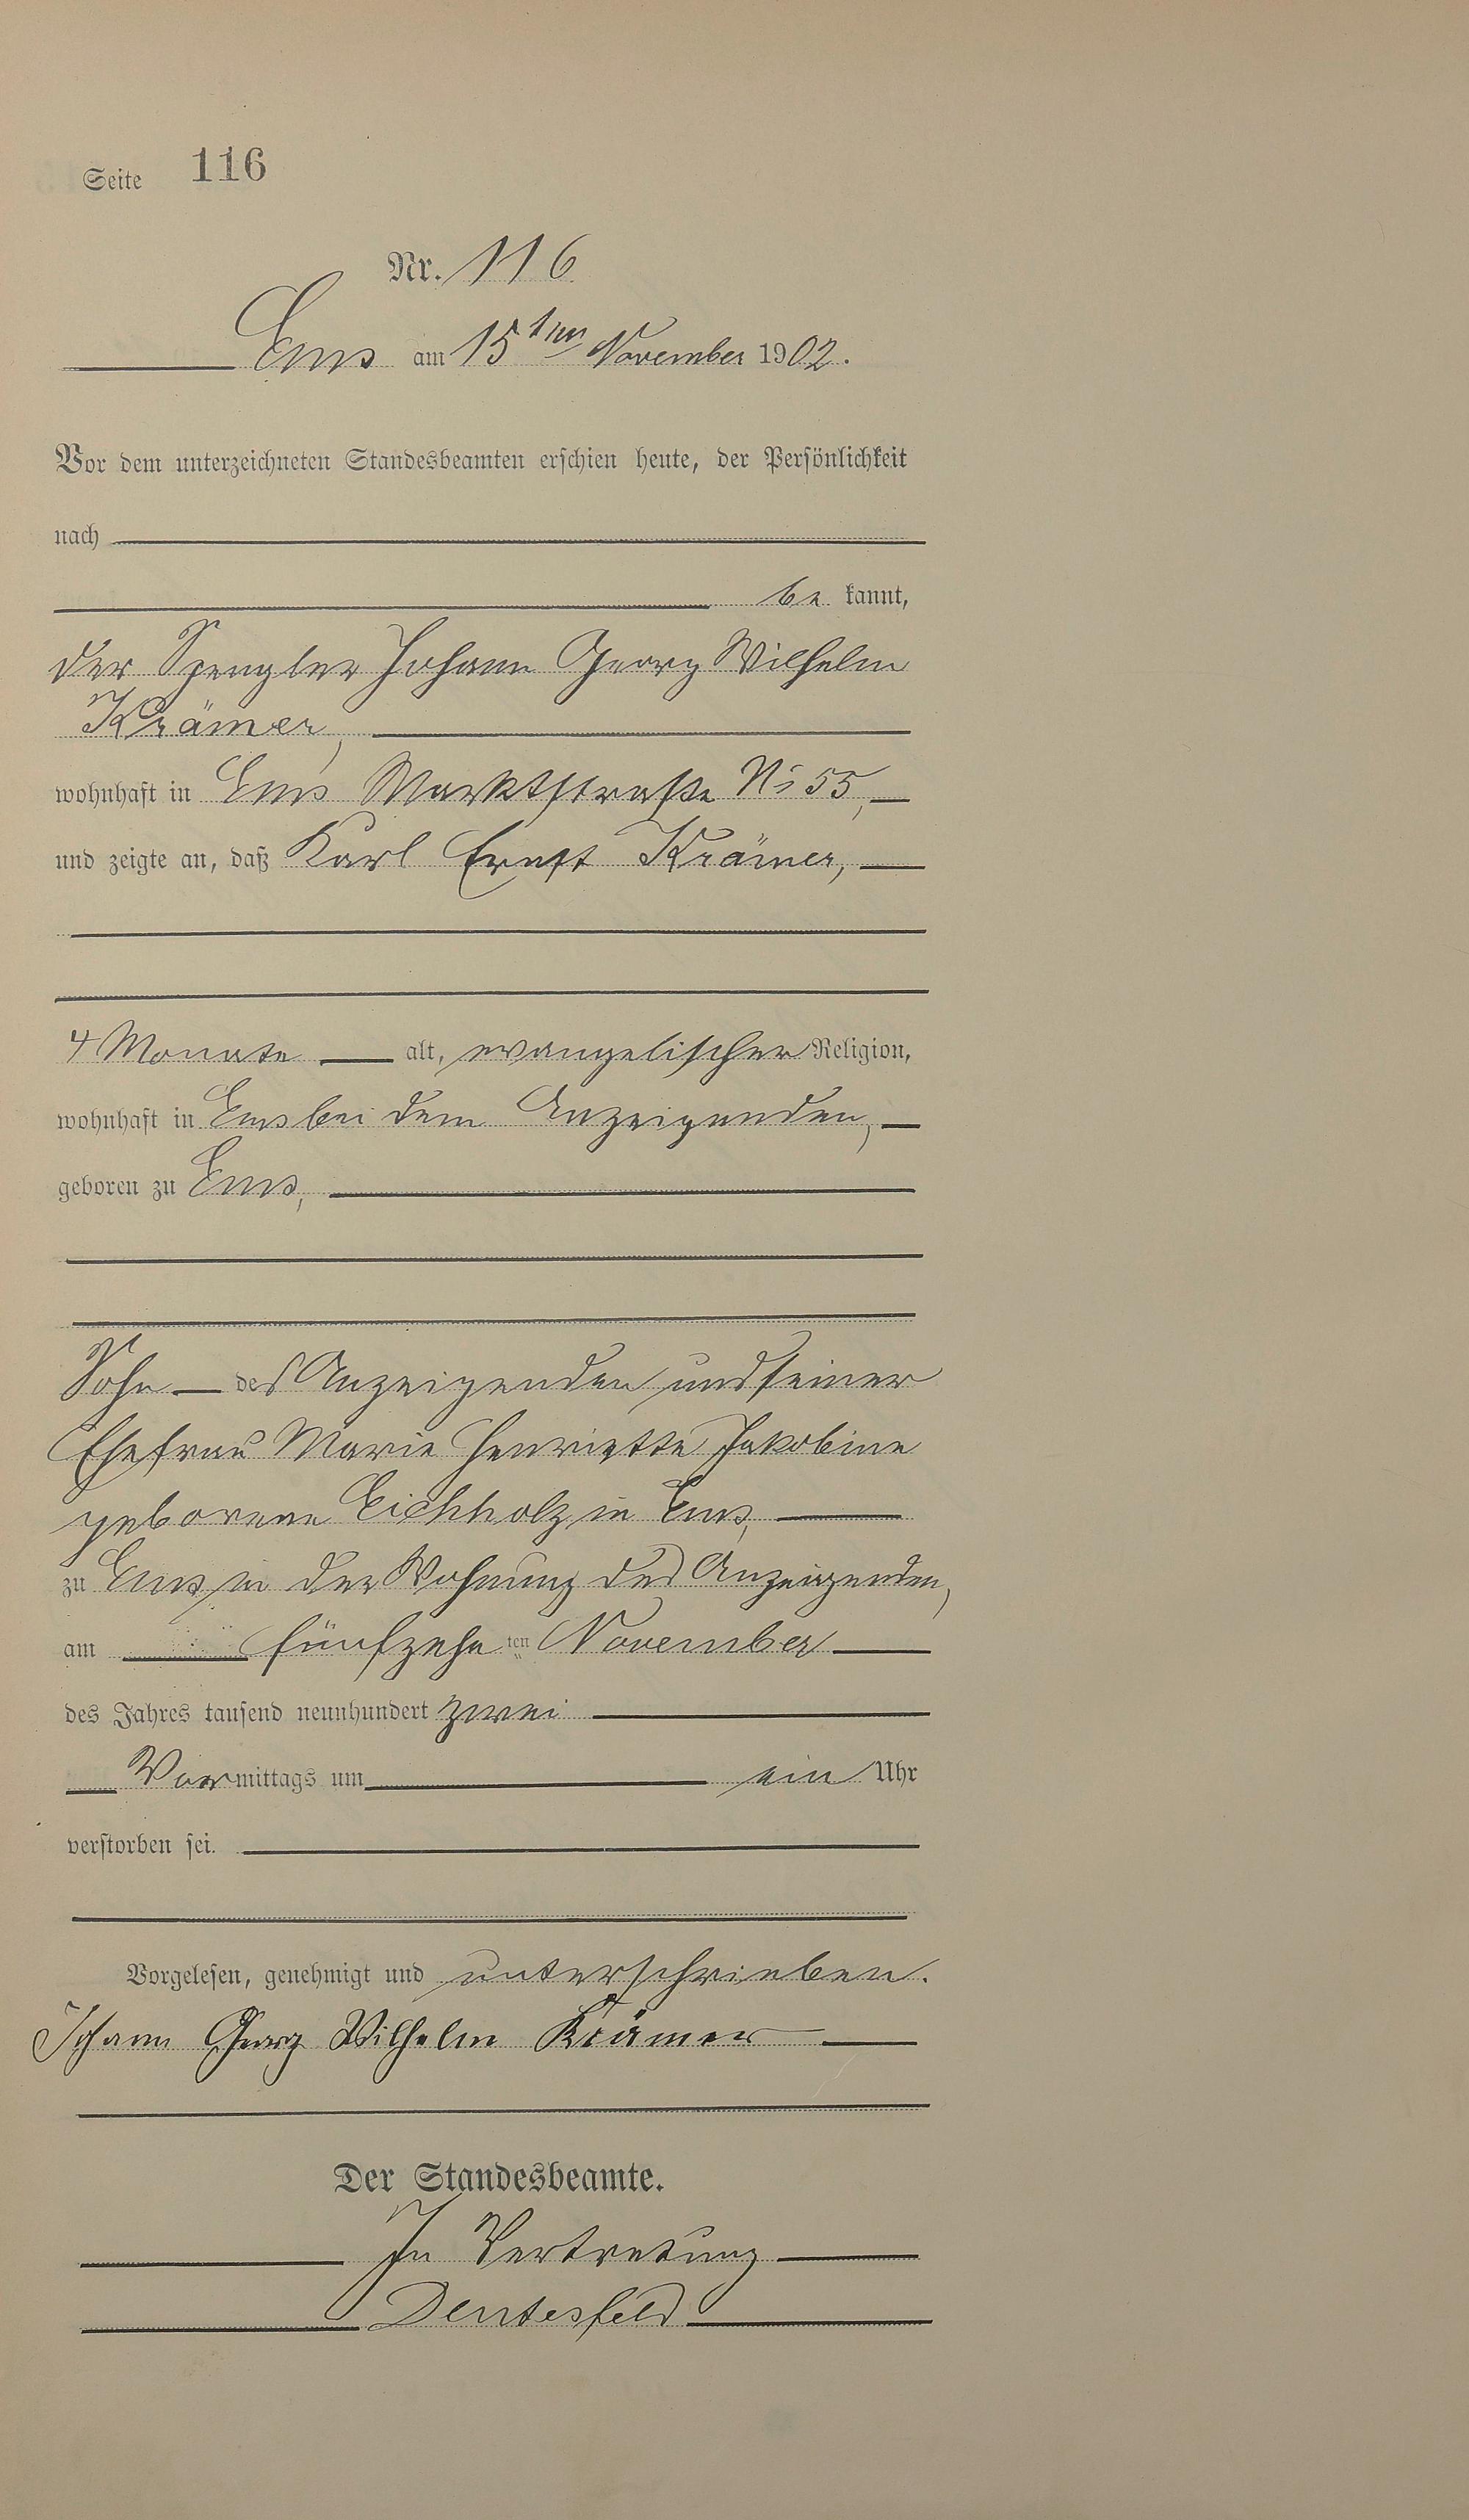 Seite 116
Nr. 116
Ems am 15ten November 1902.
Vor dem unterzeichneten Standesbeamten erschien heute, der Persönlichkeit
nach
be kannt,
der Spengler Johann Georg Wilhelm
Krämer,
wohnhaft in Ems Marktstraße No 55,
und zeigte an, daß Karl Ernst Krämer,
4 Monate alt, evangelischer Religion,
wohnhaft in Ems bei dem Anzeigenden,
geboren zu Ems,
Sohn des Anzeigenden und seiner
Ehefrau Marie Henriette Jakobine
geborene Eichholz in Ems,
zu Ems in der Wohnung des Anzeigenden,
am fünfzehn ten November
des Jahres tausend neunhundert zwei
Vormittags um ein Uhr
verstorben sei.
Vorgelesen, genehmigt und unterschrieben.
Johann Georg Wilhelm Krämer
Der Standesbeamte.
In Vertretung